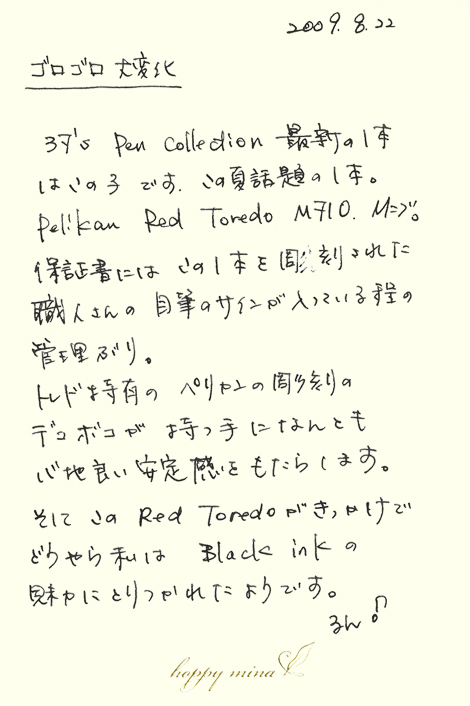 2009. 8. 22
ゴロゴロ大変化
ヨタ's Pen Collection 最新の1本
はこの子です. この夏話題の1本。
Pelikan Red Toredo M710. Mニブ。
保証書にはこの1本を彫刻された
職人さんの自筆のサインが入っている程の
管理ぶり。
トレド特有のペリカンの彫刻の
デコボコが持つ手になんとも
心地良い安定感をもたらします。
そしてこのRed Toredoがきっかけで
どうやら私は Black inkの
魅力にとりつかれたようです。
るん♪
happy mina